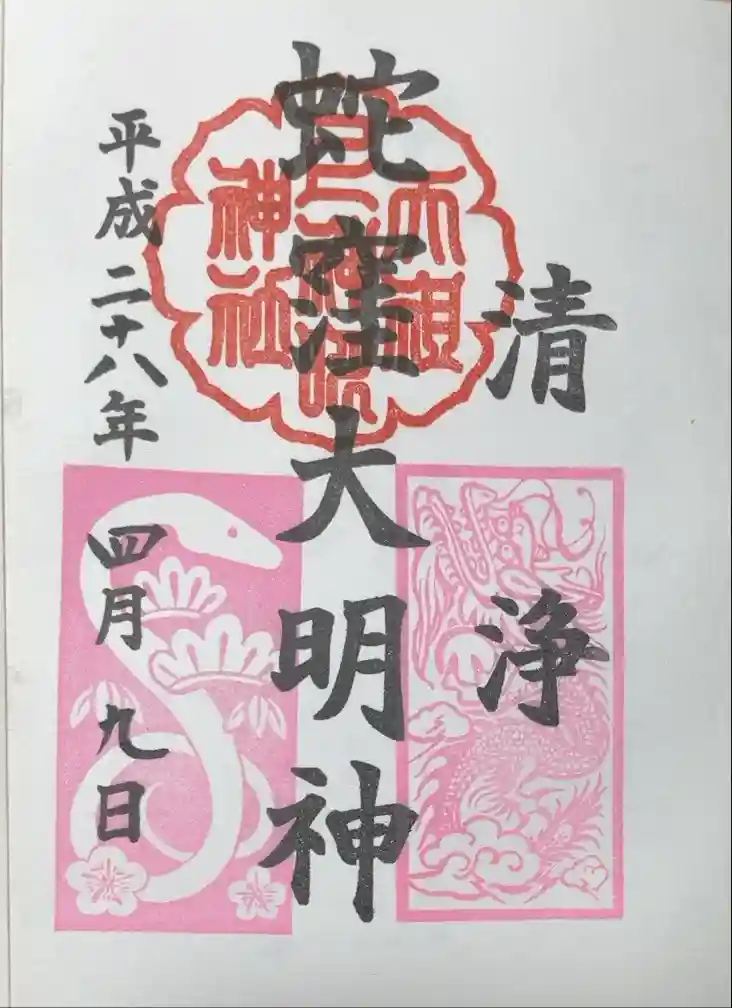 清浄
蛇窪大明神
平成二十八年四月九日
天祖
神社